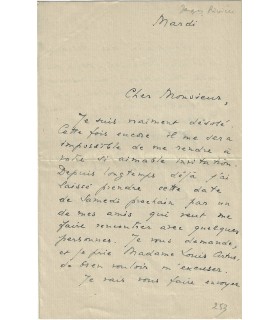 Mardi
Cher Monsieur,
Je suis vraiment désolé.
Cette fois encore il me sera
impossible de me rendre à
votre si aimable invitation
Depuis longtemps déjà j'ai
laissé prendre cette date
de Samedi prochain par un
de mes amis qui veut me
faire rencontrer avec quelques
personnes. Je vous demande,
et je prie Madame Louis
de bien vouloir m'excuser.
Je vais vous faire envoyer
253